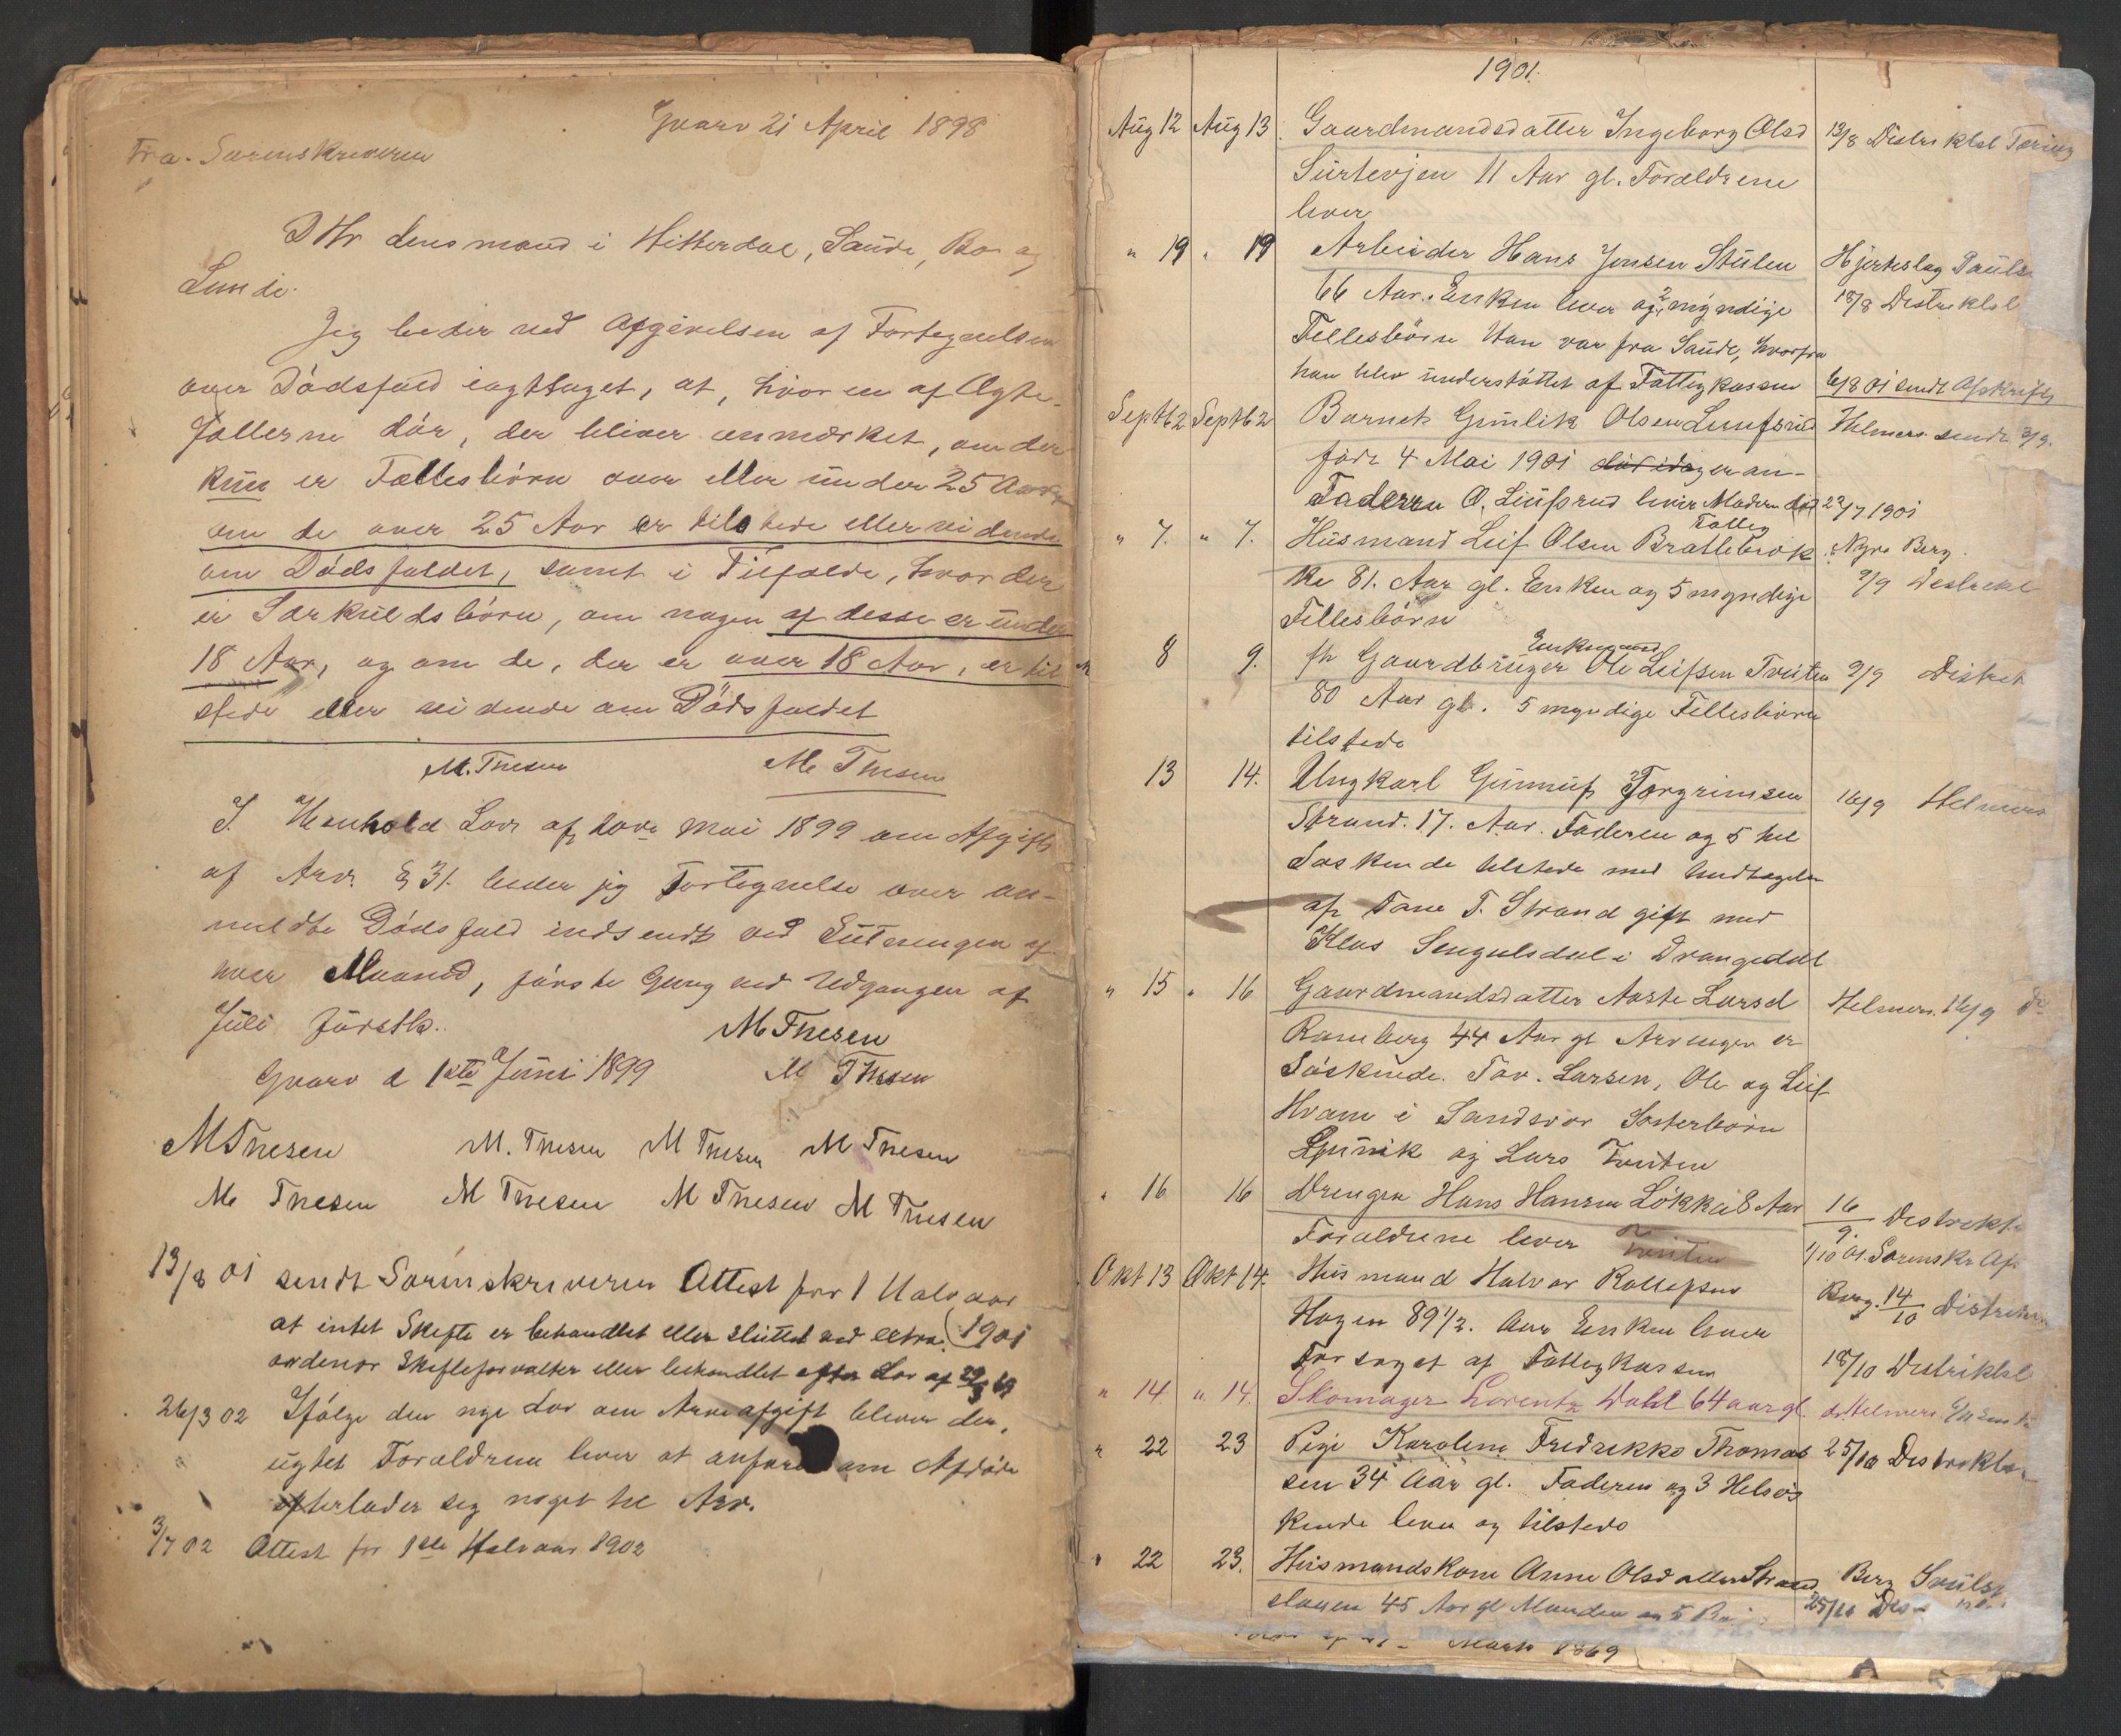 Gvarv 21 April 1898
Fra Sorenskriveren
D Hr Lensmand i Hitterdal, Saude, Bø og
Lunde.
Jeg beder ved Afgivelsen af Fortegnelsen
over Dødsfald iagttaget, at, hvor en af Ægte-
fællerne dør, der bliver anmærket, om der
kun er Fællesbørn over eller under 25 Aar,
om de over 25 Aar er tilstede eller vidende
om Dødsfaldet, samt i Tilfælde, hvor der
er Særkuldsbørn, om nogen af desse er under
18 Aar, og om de, der er over 18 Aar, er til
stede eller vidende om Dødsfaldet
M. Thesen M Thesen
I Henhold Lov af Mai 1899 om Afgift
af Arv § 31. beder jeg Fortegnelse over an-
meldte Dødsfald indsendt ved Slutningen af
hver Maaned, første Gang ved Udgangen af
Juli førstk.. M Thesen
Gvarv d 1ste Juni 1899 M Thesen
M Thesen M. Thesen M Thesen M Thesen
M Thesen M Thesen M Thesen M Thesen
13/8 01 sendt Sorenskriveren Attest for 1 Halvaar
at intet Skifte er behandlet eller sluttet ved extra (1901
ordinær Skifteforvalter eller behandlet efter Lov af
26/3 02 Ifølge den nye Lov om Arveafgift bliver der,
Forældrene lever at anføre om Afdøde
efterlader sig noget til Arv.
3/7 02 Attest for 1ste Halvaar 1902
1901.
Aug 12 Aug 13. Gaardmandsdatter Ingeborg Olsd 13/8 Distriktsl
11 Aar gl. Forældrene
lever
" 19 " 19 Arbeider Hans Jensen Stulen Hjerteslag
66 Aar. Enken lever og 2 myndige 18/8 Distriktsl
Fellesbørn Han var fra Saude, hvorfra
han blev understøttet af Fattigkassen 01 sendt Afskrift
Septb 2 Septb 2 Barnet Gunlik Olsen Lunfsrud Helmers sendt 3/9.
født 4 Mai 1901
Faderen O. Lunfsrud lever Moderen død 23/7 1901
Fattig
" 7. " 7. Husmand Leif Olsen Brattebrok Nyre Berg.
ke 81. Aar gl. Enken og 5 myndige 9/9 Distriktsl
Fellesbørn
Enkemand
8 9. fh Gaardbruger Ole Leifsen Tveiten 9/9 Distrik
80 Aar gl. 5 myndige Fellesbørn
tilstede
13 14. Ungkarl Gunnuf Torgrimsen 16/9 Helmers
Strand. 17. Aar. Faderen og 5 hel
Søskende tilstede med Undtagelse
af Tone T. Strand gift med
Klas i Drangedal
" 15 " 16 Gaardmandsdatter Aaste Larsd Helmers. 16/9
Ramberg 44 Aar gl Arvinger er
Søskende. Tov. Larsen, Ole og Leif
Hvam i Sandsvær Søsterbørn
Gunnik og Lars Tveiten
" 16 16 Drengen Hans Hansen Løkka 8 Aar 16/9 Distrikts
Forældrene lever Tveiten 1/10 01. Sorenskr Af
Okt 13 Okt 14. Husmand Halvor Rollefsen Berg. 14/10 Distrikts
Hagen 89 1/2. Aar Enken lever
Forsørget af Fattigkassen 18/10 Distriktsl
" 14 " 14. Skomager Lorentz Dahl 64 aar gl. dr Helmers
" 22 23 Pige Karoline Fredrekke Thomas 25/10 Distriktsl
sen 34 Aar gl. Faderen og 3 Helsøs
kende lever og tilstede
" 22 23. Husmandskone Anne Olsdatter Strand Berg
45 Aar gl Manden og 5 25/10
Marts 1869